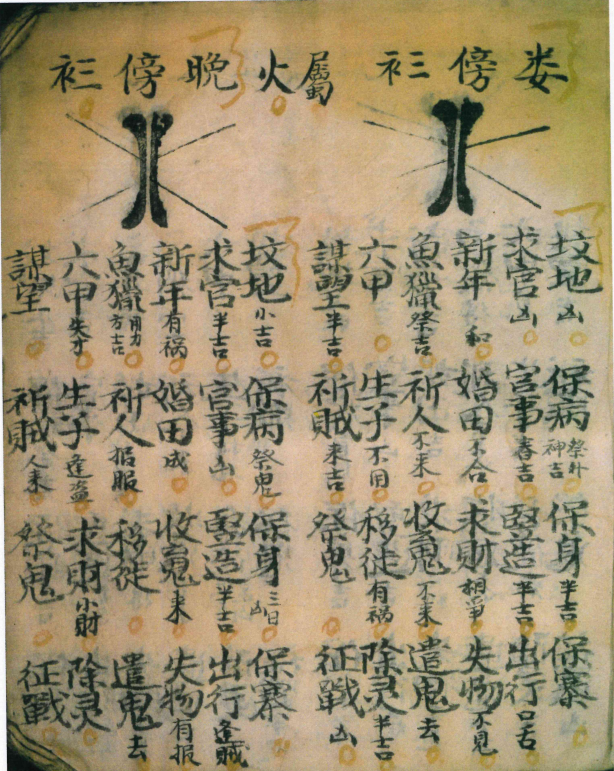 娄傍衤三
坟地凶 保病祭外神吉 保身半吉 保寨
求官凶 官事春吉 竪造半吉 出行口舌
新年和 婚田不合 求財相爭 失物不見
魚獵祭吉 祈人不来 收䰟不来 遣鬼去
六甲 生子不用 移徙有祸 除灵半吉
謀望半吉 祈贼来吉 祭鬼 征戰凶
屬火晚傍衤三
坟地小吉 保病祭鬼 保身三日凶 保寨
求官半吉 官事凶 竪造半吉 出行逢贼
新年有祸 婚田成 收䰟来 失物有报
魚獵用力方吉 祈人报服 移徙 遣鬼去
六甲失才 生子逢盗 求財小財 除灵
謀望 祈贼人来 祭鬼 征戰